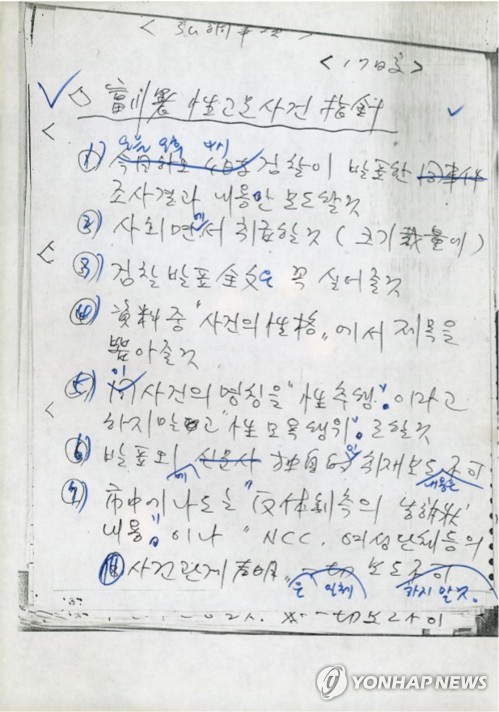 <17日字>
富川署 性고문사건 指針
오늘 오후 4시
1) 今日하오 4時 검찰이 발표한 同事件
조사결과 내용만 보도할것
2) 사회면에서 취급할것 (크기 裁量에)
3) 검찰발표 全文은 꼭 실어줄것
4) 資料중 "사건의 性格"에서 제목을
뽑아줄것
5) 이 사건의 명칭을 "性추행"이라고
하지말고 "性모욕행위"로할것
6) 발표외에 独自的인 취재보도 내용은 不可
7) 市中에 나도는 "反体制측의 告訴狀
내용"이나 "NCC, 여성단체등의
사건관계 声明"은 일체 一切 보도 不可 하지 말것.